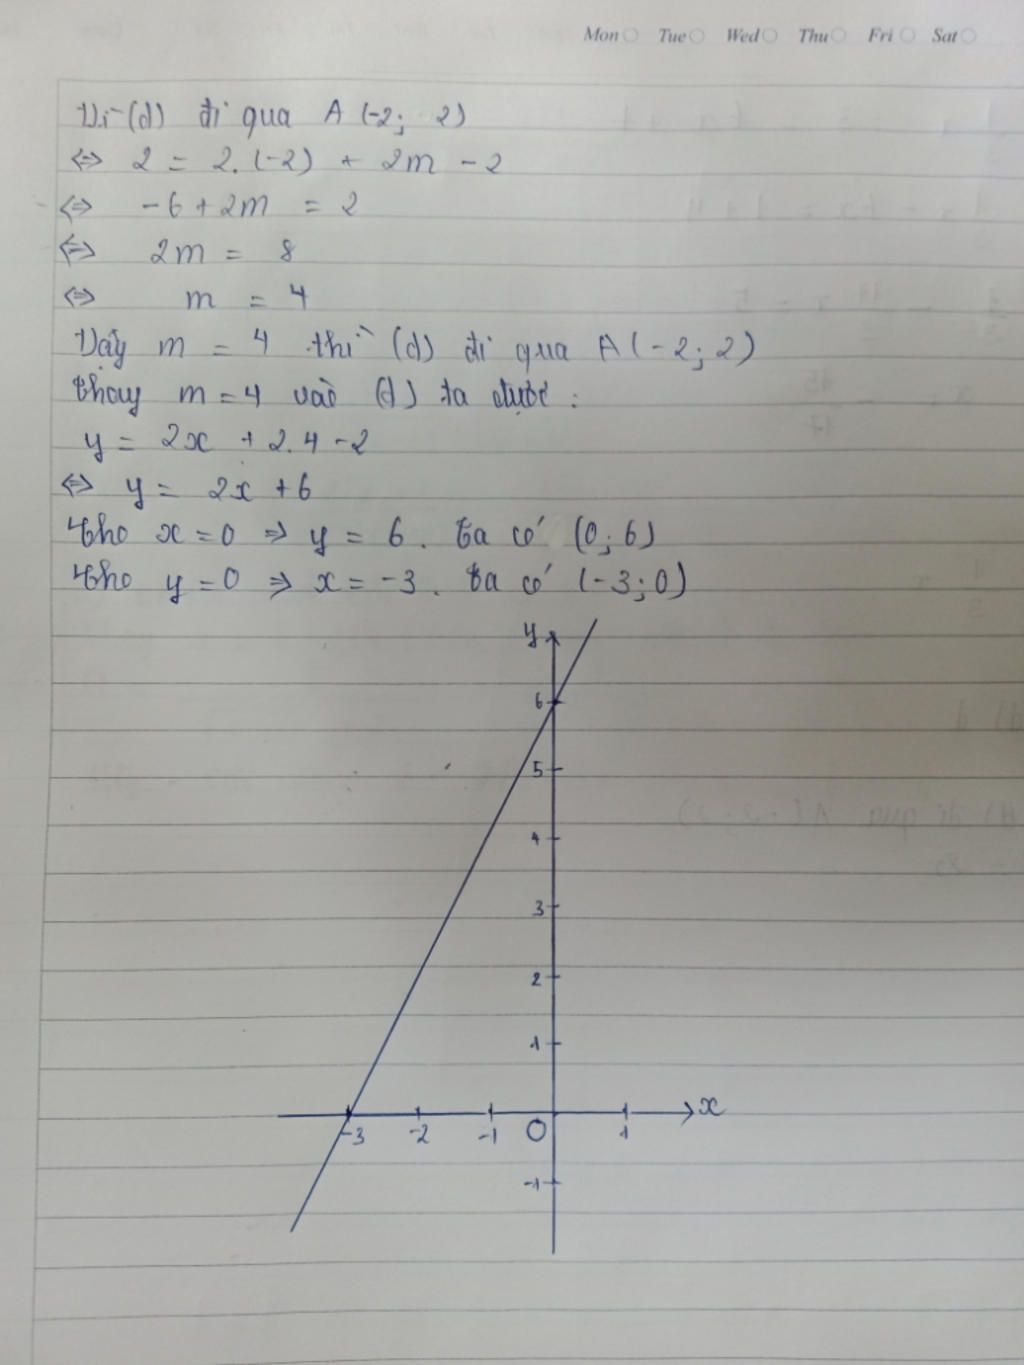 Mon Tue Wed Thu Fri Sat
Vì (d) đi qua A (-2; 2)
⇔ 2 = 2.(-2) + 2m - 2
⇔ -6 + 2m = 2
⇔ 2m = 8
⇔ m = 4
Vậy m = 4 thì (d) đi qua A(-2; 2)
Thay m = 4 vào (d) ta được :
y = 2x + 2.4 - 2
⇔ y = 2x + 6
Cho x = 0 ⇒ y = 6. Ta có (0; 6)
Cho y = 0 ⇒ x = -3. Ta có (-3; 0)
y
6
5
4
3
2
1
x
-3 -2 -1 O 1
-1